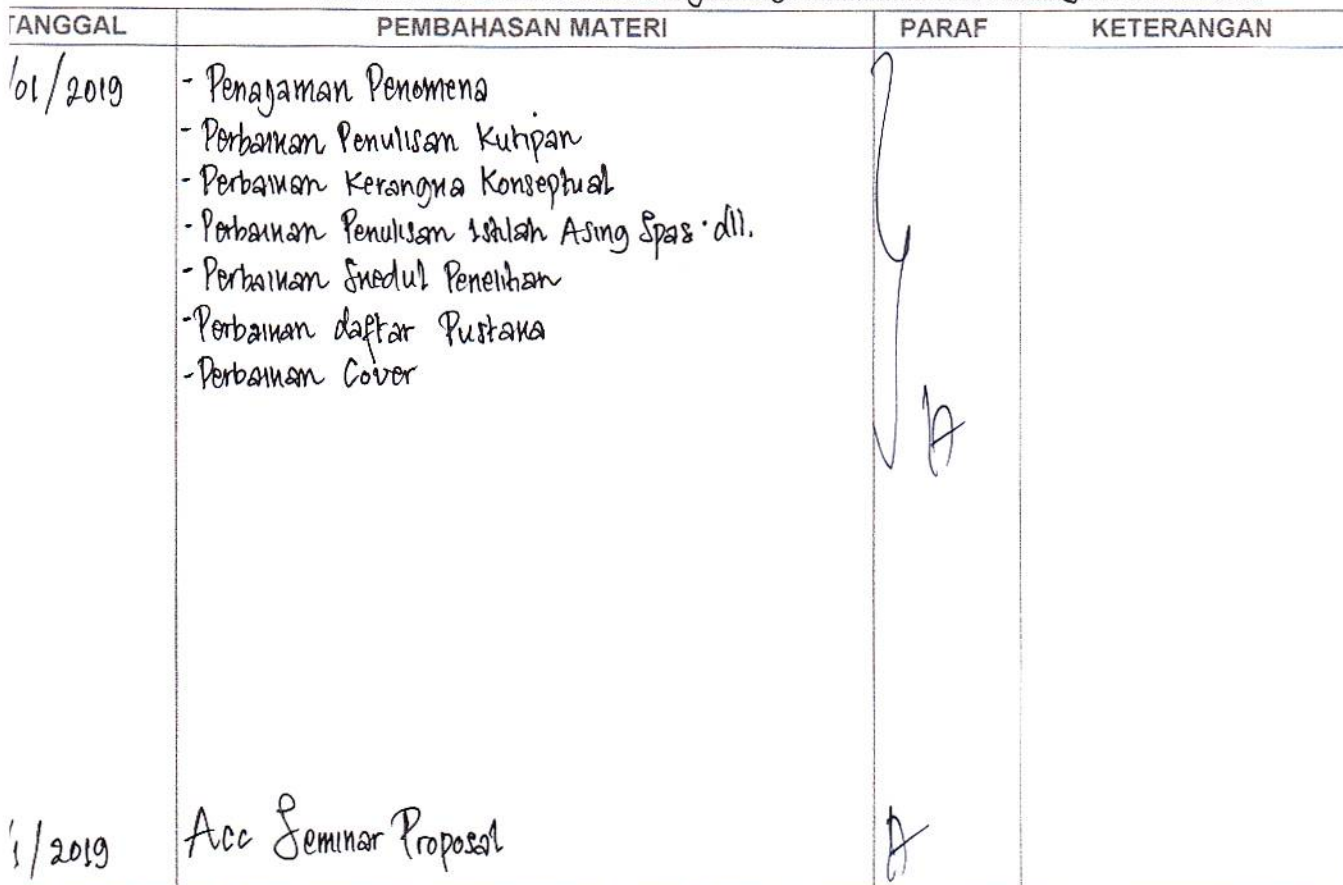 TANGGAL PEMBAHASAN MATERI PARAF KETERANGAN
/01/2019
- Penajaman Penomena
- Perbaikan Penulisan Kutipan
- Perbaikan Kerangka Konseptual
- Perbaikan Penulisan Istilah Asing Spasi dll.
- Perbaikan Skedul Penelitian
- Perbaikan daftar Pustaka
- Perbaikan Cover
1/2019 Acc Seminar Proposal